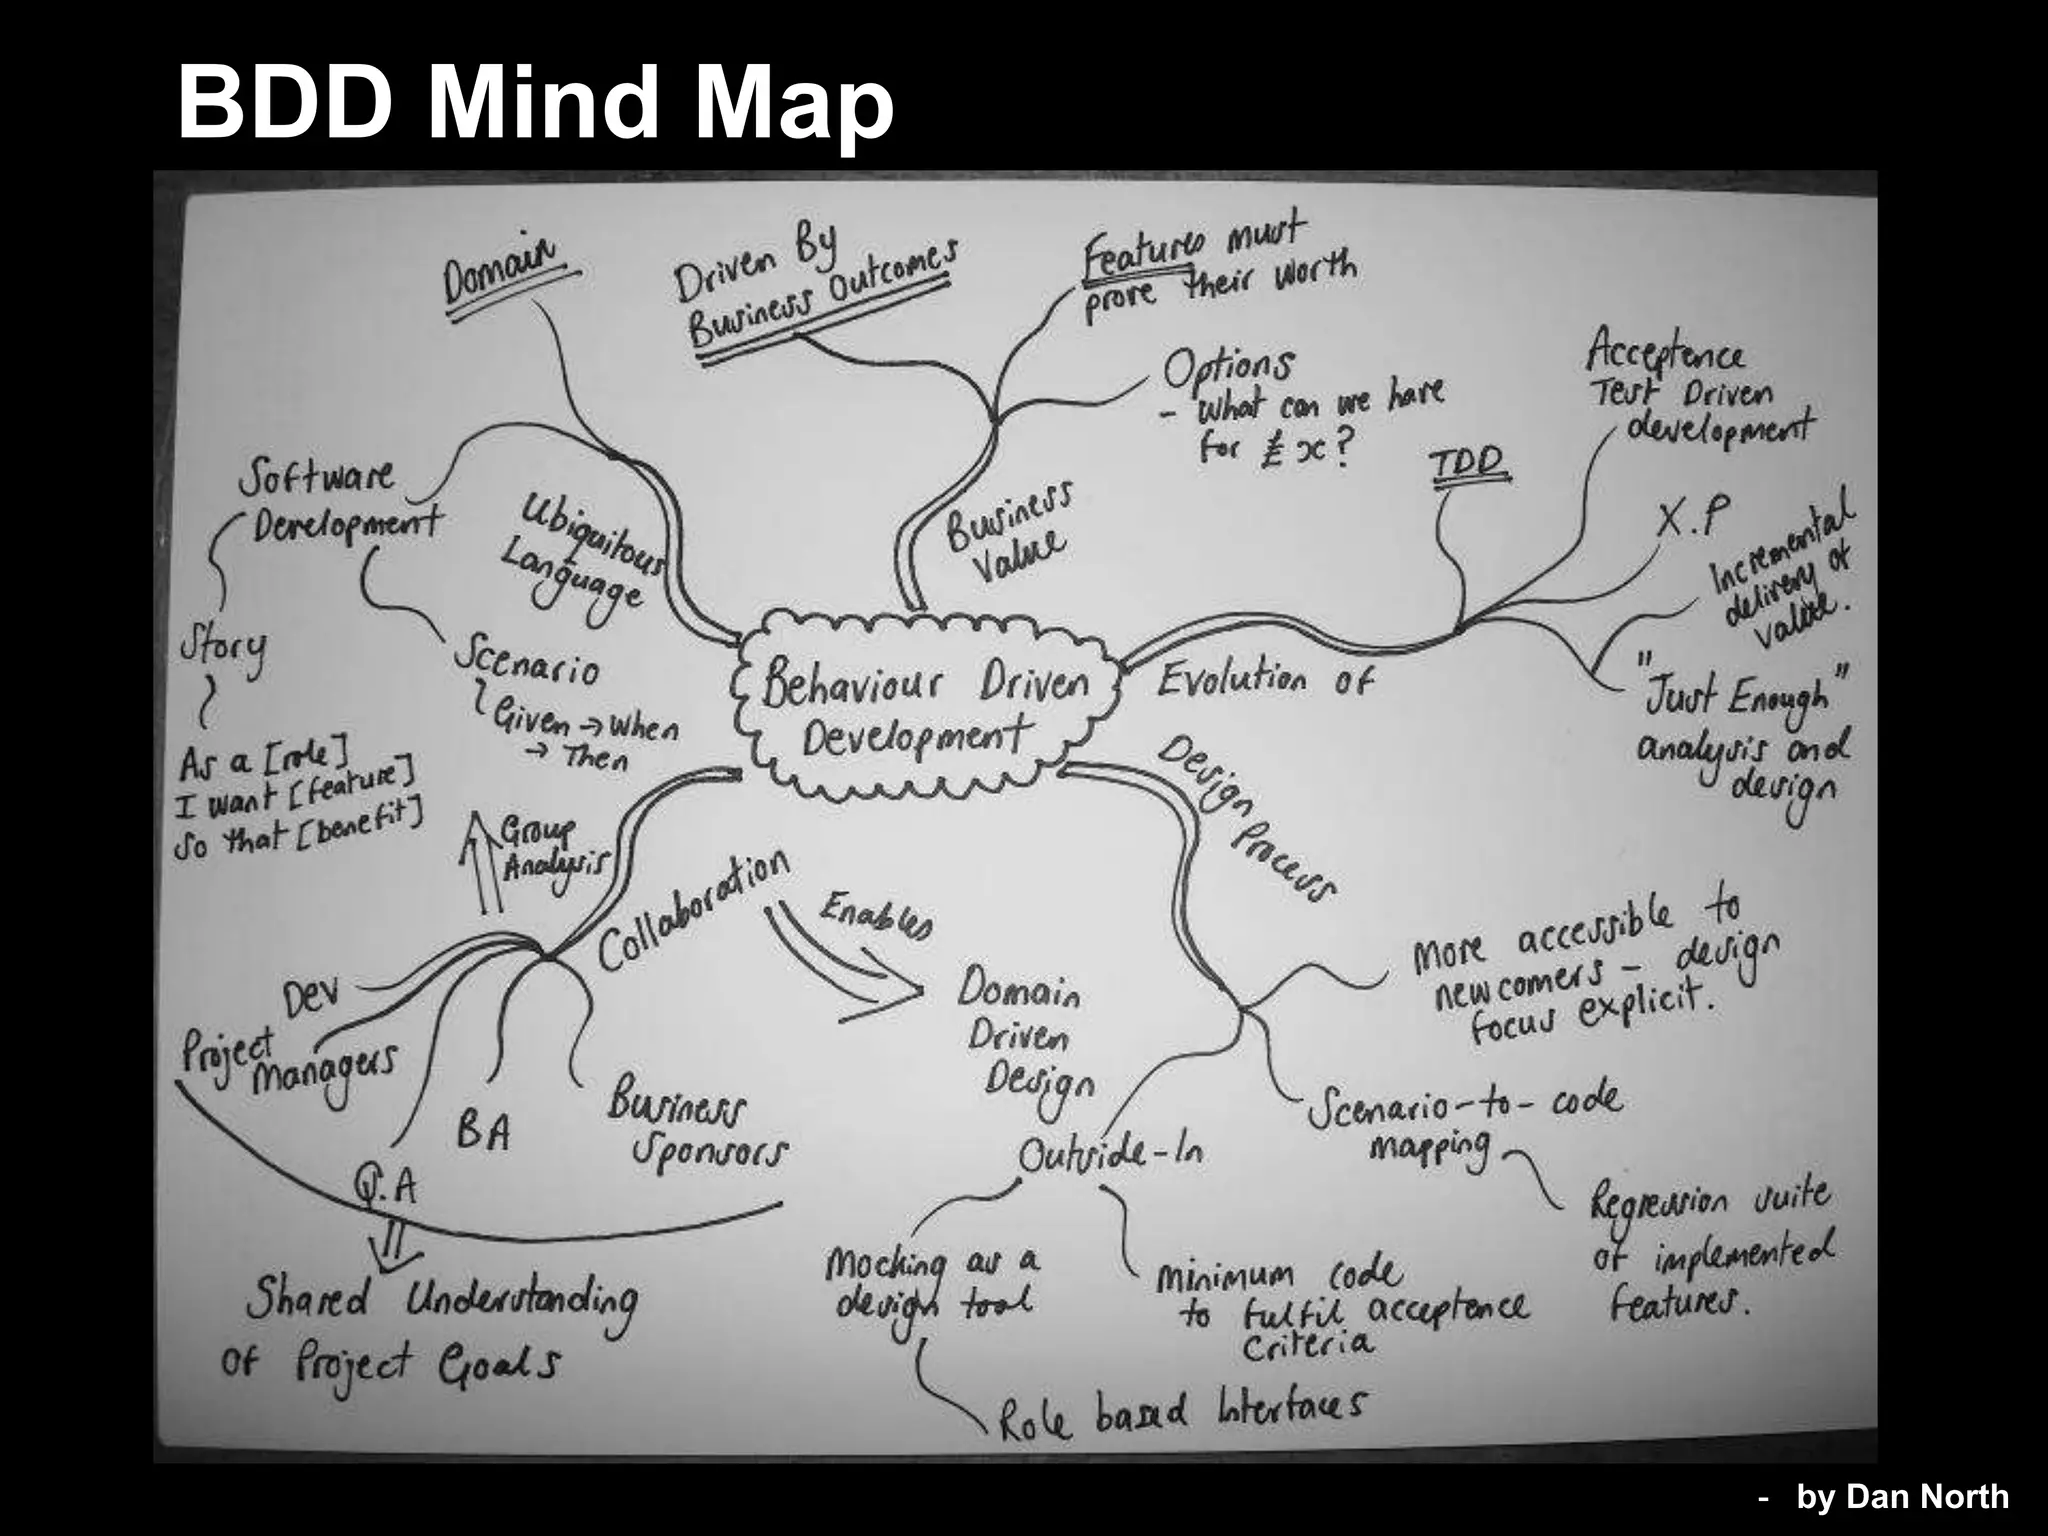 BDD Mind Map
Domain
Driven By
Business Outcomes
Features must
prove their worth
Options
- What can we have
for £ x?
Business
Value
Software
Development
Ubiquitous
Language
Story
As a [role]
I want [feature]
So that [benefit]
Scenario
Given → When
→ Then
Behaviour Driven
Development
Evolution of
TDD
Acceptence
Test Driven
development
X.P
Incremental
delivery of
value.
"Just Enough"
analysis and
design
Group
Analysis
Collaboration
Enables
Domain
Driven
Design
Dev
Project
Managers
Q.A
BA
Business
Sponsors
Shared Understanding
Of Project Goals
Design Process
More accessible to
newcomers - design
focus explicit.
Scenario-to-code
mapping
Regression suite
of implemented
features.
Outside-In
Mocking as a
design tool
Role based Interfaces
Minimum code
to fulfil acceptence
criteria
- by Dan North